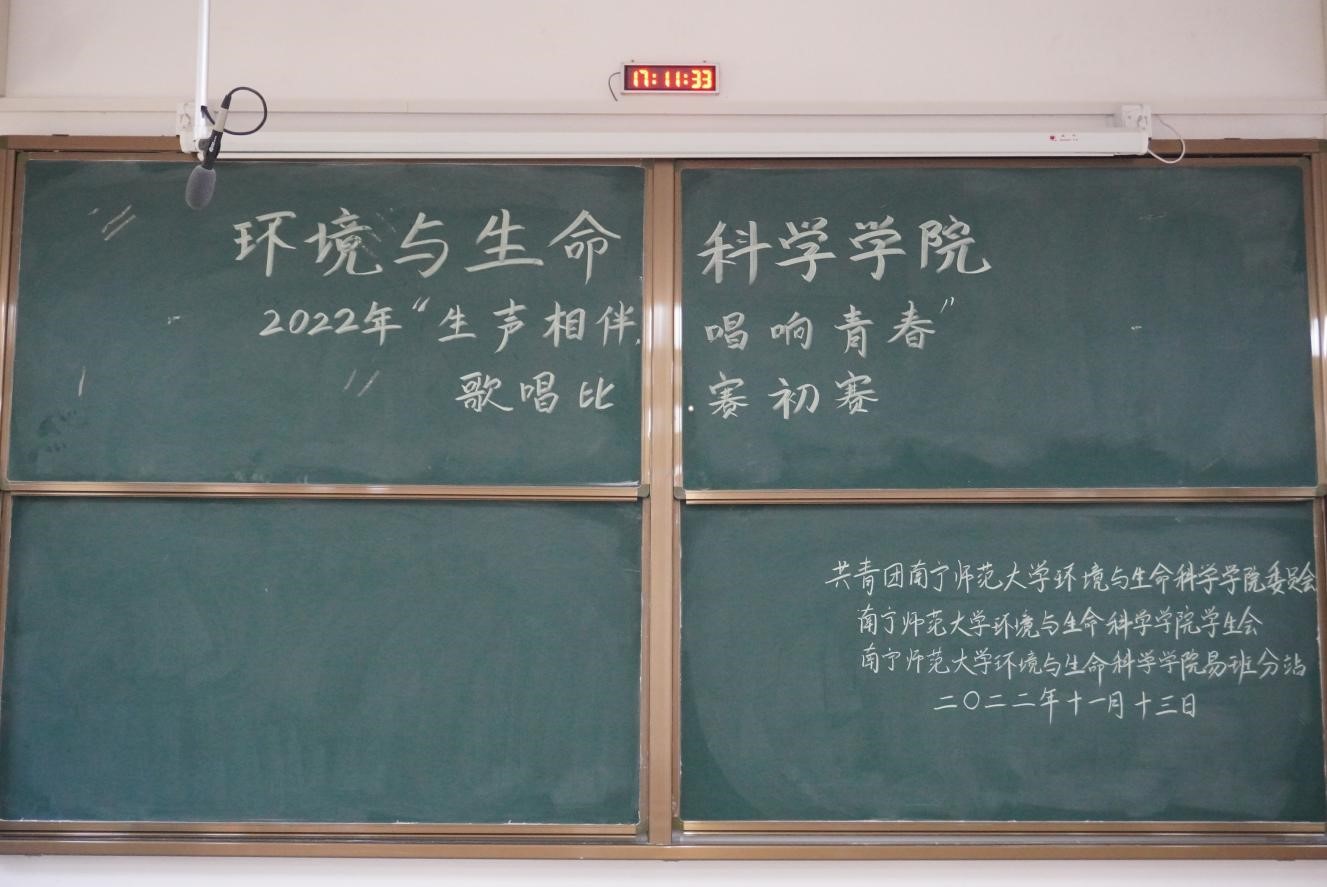 17:11:33
环境与生命科学学院
2022年“生声相伴,唱响青春”
歌唱比赛初赛
共青团南宁师范大学环境与生命科学学院委员会
南宁师范大学环境与生命科学学院学生会
南宁师范大学环境与生命科学学院易班分站
二〇二二年十一月十三日